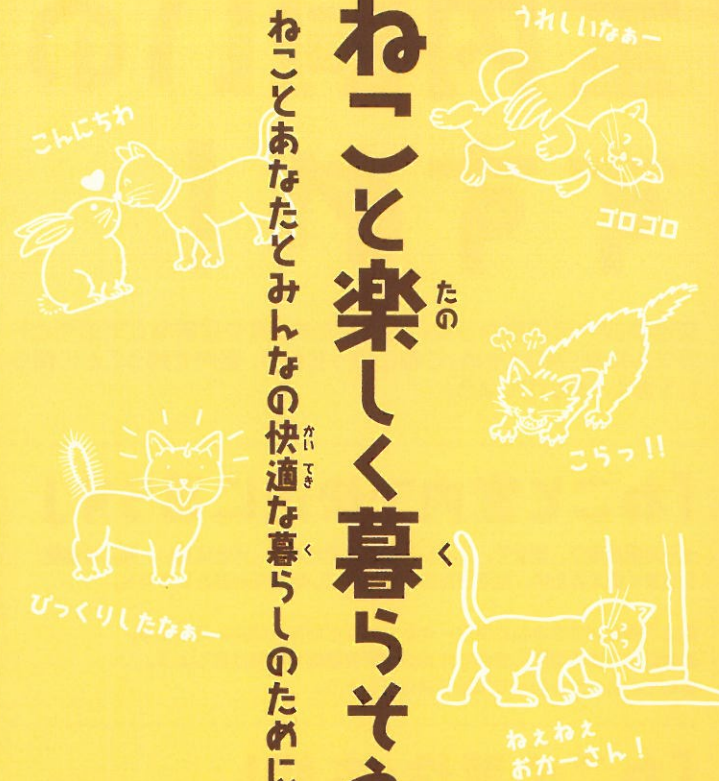 ねこと楽しく暮らそう
たの
く
ねことあなたとみんなの快適な暮らしのために
かい てき
く
うれしいなぁー
ゴロゴロ
こらっ!!
ねぇねぇ
おかーさん!
こんにちわ
びっくりしたなぁー